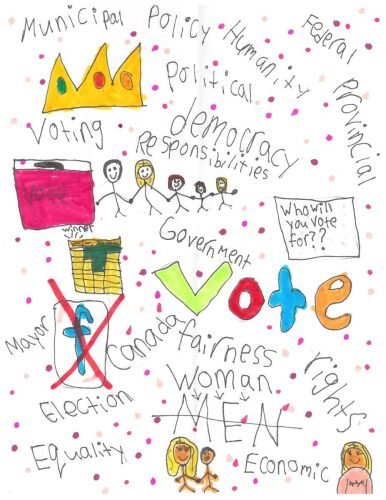 Municipal
Policy
Humanity
Federal
Political
Provincial
Voting
democracy
Responsibilities
Vote
Who will
you vote
for??
winner
Government
Vote
Mayor
f
Canada
fairness
Woman
MEN
rights
Election
Equality
Economic